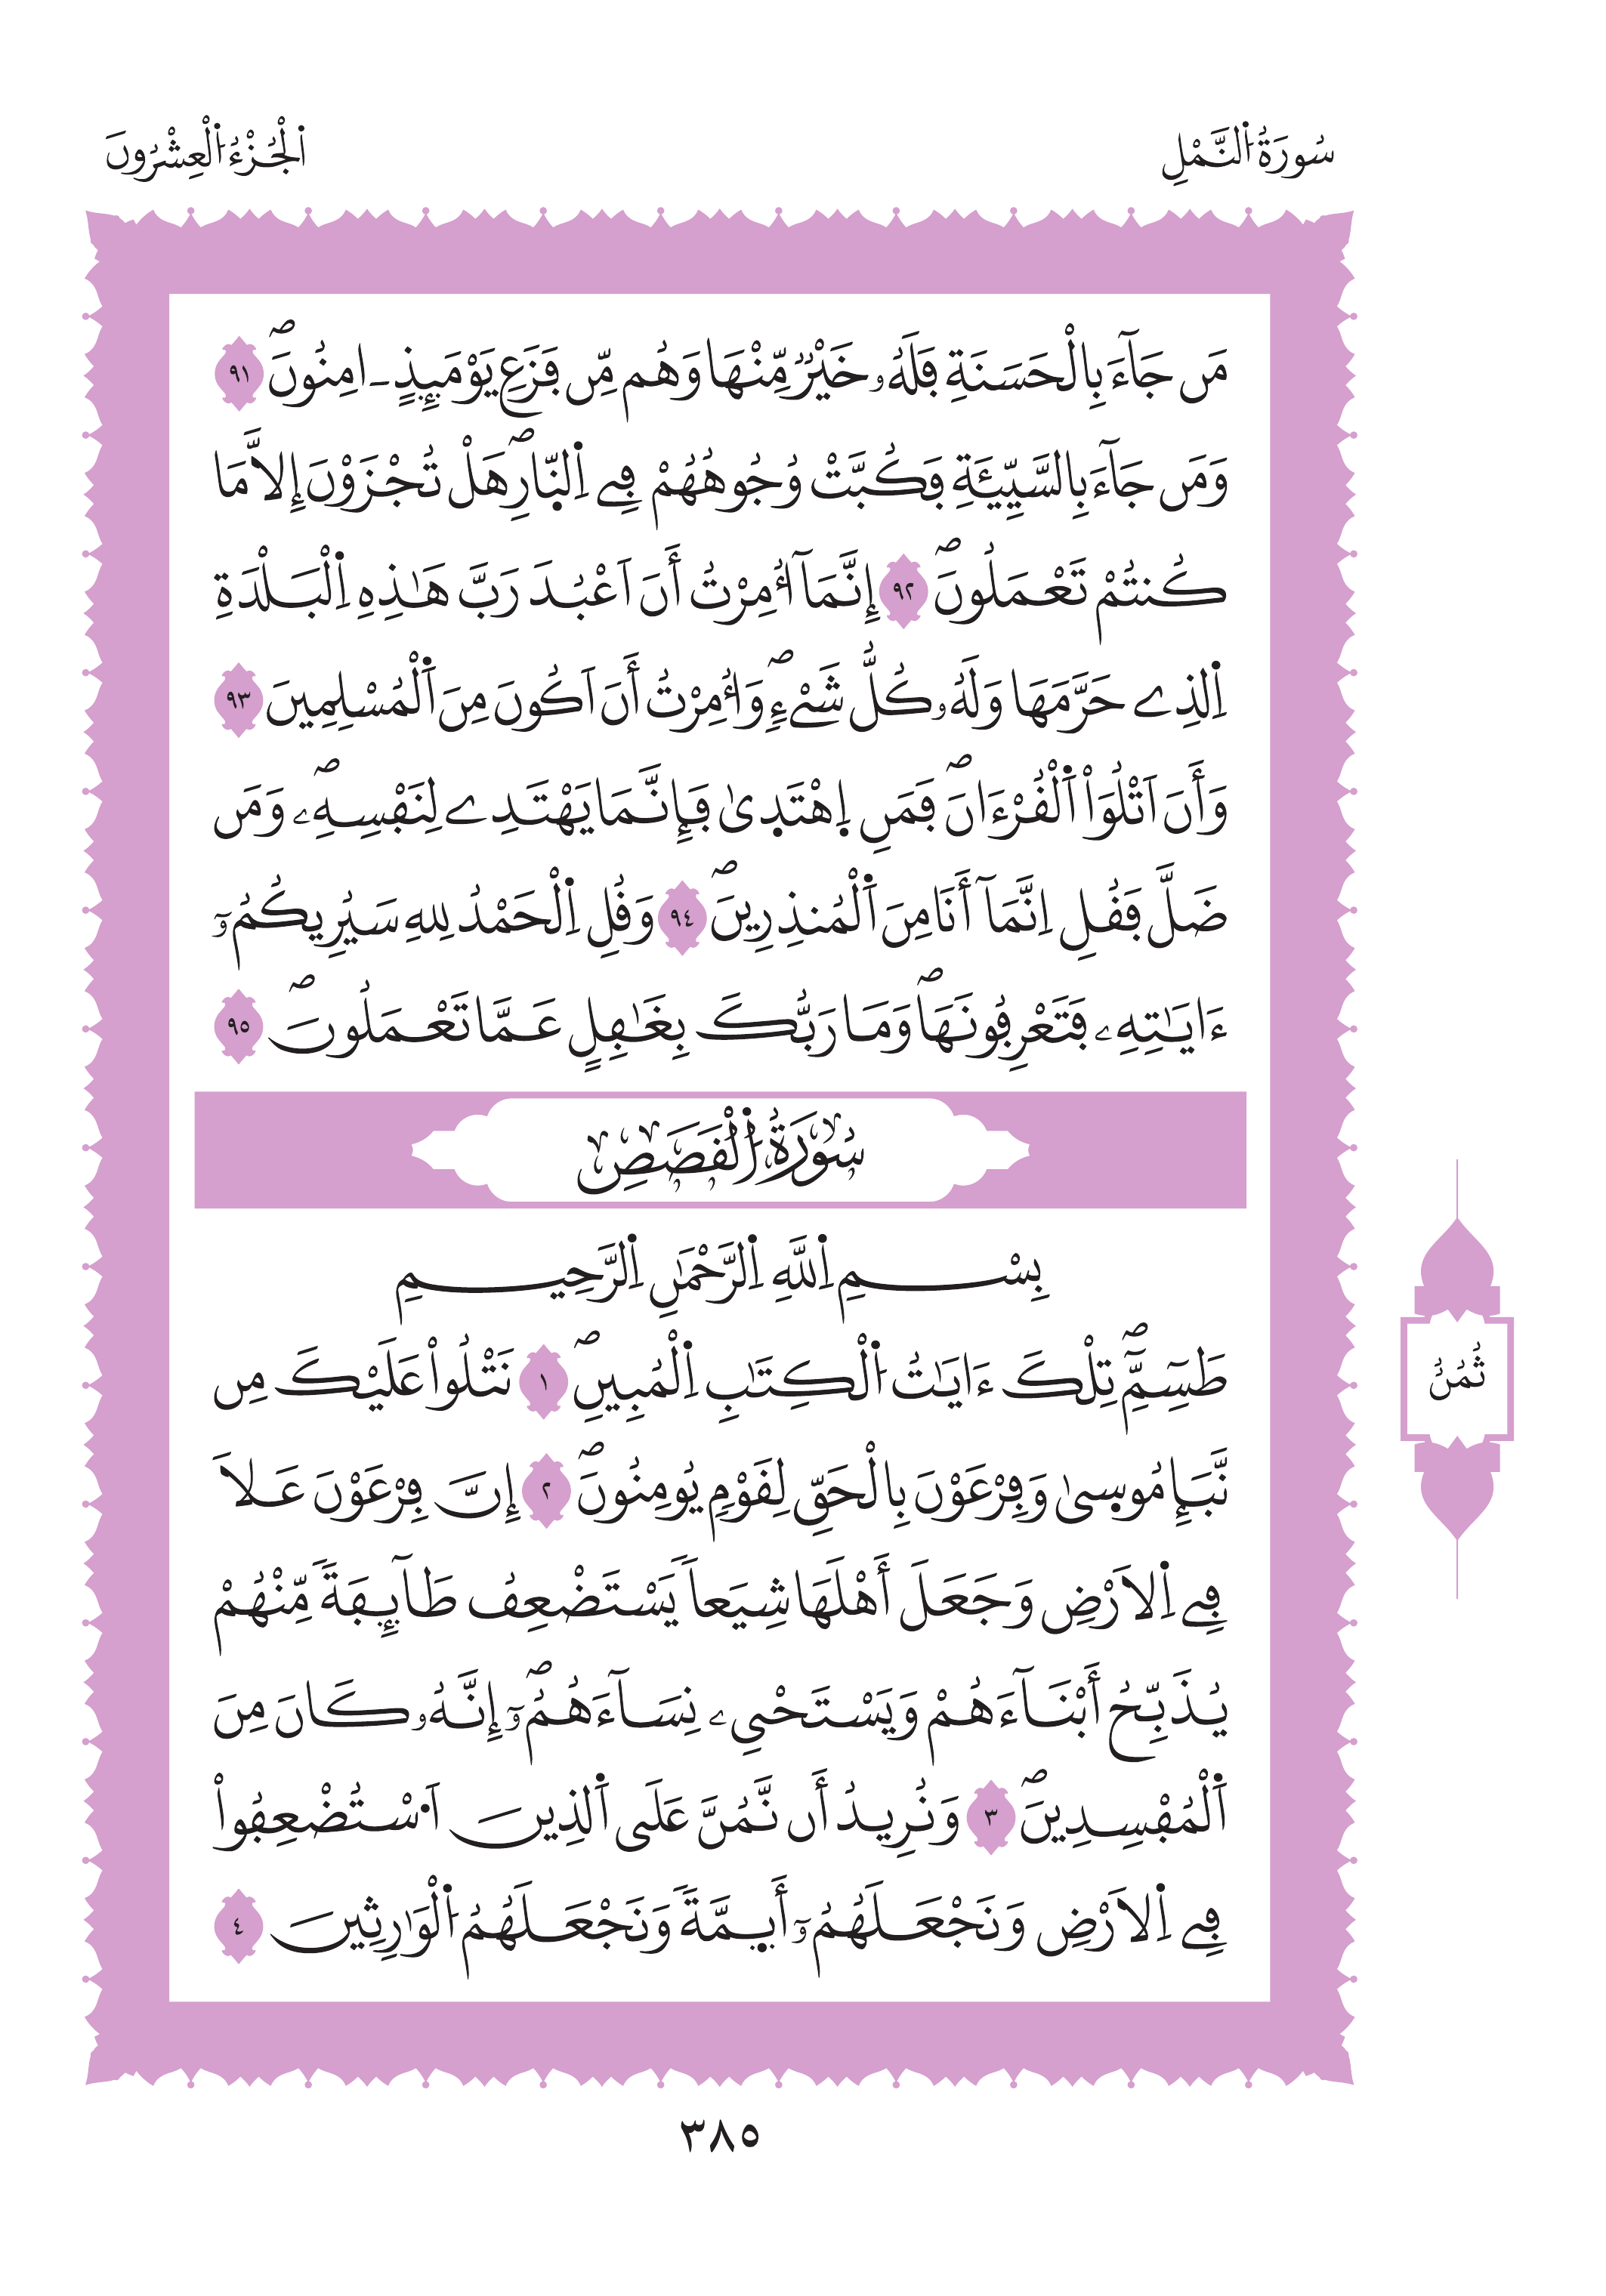 سُورَةُ اُ۬لنَّمْلِ
اَ۬لْجُزْءُ اُ۬لْعِشْرُونَ
مَن جَآءَ بِالْحَسَنَةِ فَلَهُۥ خَيْرٞ مِّنْهَا وَهُم مِّن فَزَعِ يَوْمَئِذٍ ـ اٰمِنُونَۖ ٩١
وَمَن جَآءَ بِالسَّيِّئَةِ فَكُبَّتْ وُجُوهُهُمْ فِے اِ۬لنّ۪ارِۖ هَلْ تُجْزَوْنَ إِلاَّ مَا
كُنتُمْ تَعْمَلُونَۖ ٩٢ إِنَّمَآ أُمِرْتُ أَنَ اَعْبُدَ رَبَّ هَٰذِهِ اِ۬لْبَلْدَةِ
اِ۬لذِے حَرَّمَهَا وَلَهُۥ كُلُّ شَےْءٖۖ وَأُمِرْتُ أَنَ اَكُونَ مِنَ اَ۬لْمُسْلِمِينَ ٩٣
وَأَنَ اَتْلُوَاْ اَ۬لْقُرْءَانَۖ فَمَنِ اِ۪هْتَد۪يٰ فَإِنَّمَا يَهْتَدِے لِنَفْسِهِۦۖ وَمَن
ضَلَّ فَقُلِ اِنَّمَآ أَنَا مِنَ اَ۬لْمُنذِرِينَۖ ٩٤ وَقُلِ اِ۬لْحَمْدُ لِلهِ سَيُرِيكُمُۥٓ
ءَايَٰتِهِۦ فَتَعْرِفُونَهَاۖ وَمَا رَبُّكَ بِغَٰفِلٍ عَمَّا تَعْمَلُونَۖ ٩٥
سُورَةُ اُ۬لْقَصَصِ
بِسْمِ اِ۬للَّهِ اِ۬لرَّحْمَٰنِ اِ۬لرَّحِيمِ
طَسِٓمِّٓۖ تِلْكَ ءَايَٰتُ اُ۬لْكِتَٰبِ اِ۬لْمُبِينِۖ ١ نَتْلُواْ عَلَيْكَ مِن
نَّبَإِ مُوس۪يٰ وَفِرْعَوْنَ بِالْحَقِّ لِقَوْمٖ يُومِنُونَۖ ٢ إِنَّ فِرْعَوْنَ عَلاَ
فِے اِ۬لَارْضِ وَجَعَلَ أَهْلَهَا شِيَعاٗ يَسْتَضْعِفُ طَآئِفَةٗ مِّنْهُمْ
يُذَبِّحُ أَبْنَآءَهُمْ وَيَسْتَحْيِۦ نِسَآءَهُمُۥٓۖ إِنَّهُۥ كَانَ مِنَ
اَ۬لْمُفْسِدِينَۖ ٣ وَنُرِيدُ أَن نَّمُنَّ عَلَي اَ۬لذِينَ اَ۟سْتُضْعِفُواْ
فِے اِ۬لَارْضِ وَنَجْعَلَهُمُۥٓ أَي۪مَّةٗ وَنَجْعَلَهُمُ اُ۬لْوَٰرِثِينَ ٤
ثُمُنُ
٣٨٥